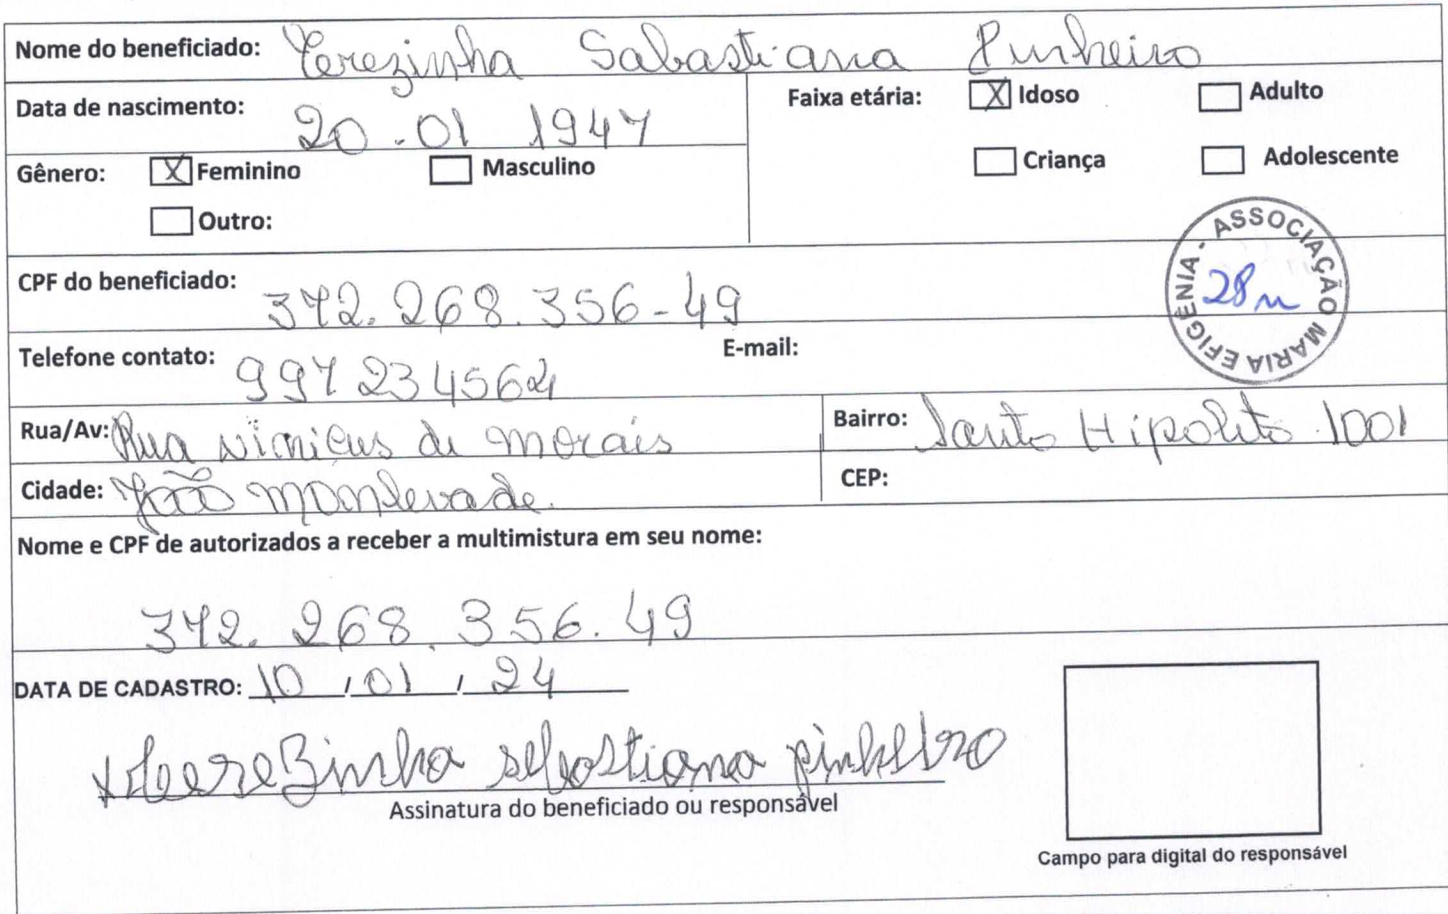 Nome do beneficiado: Terezinha Sabastiana Pinheiro
Data de nascimento: 20.01 1947
Faixa etária: [X] Idoso [ ] Adulto
[ ] Criança [ ] Adolescente
Gênero: [X] Feminino [ ] Masculino
[ ] Outro:
ASSOCIAÇÃO MARIA EFIGÊNIA
28
CPF do beneficiado: 372.268.356-49
Telefone contato: 997234564
E-mail:
Rua/Av: Rua Vinicius de Morais
Bairro: Santo Hipolito 1001
Cidade: João Monlevade.
CEP:
Nome e CPF de autorizados a receber a multimistura em seu nome:
372.268.356.49
DATA DE CADASTRO: 10 / 01 / 24
x terezinha sebastiana pinheiro
Assinatura do beneficiado ou responsável
Campo para digital do responsável